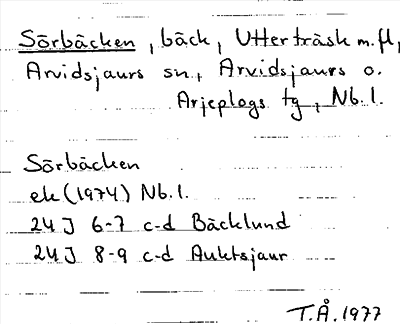 Sörbäcken, bäck, Utterträsk m.fl,
Arvidsjaurs sn, Arvidsjaurs o.
Arjeplogs tg, Nb.l.
Sörbäcken
ek (1974) Nb.l.
24 J 6-7 c-d Bäcklund
24 J 8-9 c-d Auktsjaur
T.Å. 1977